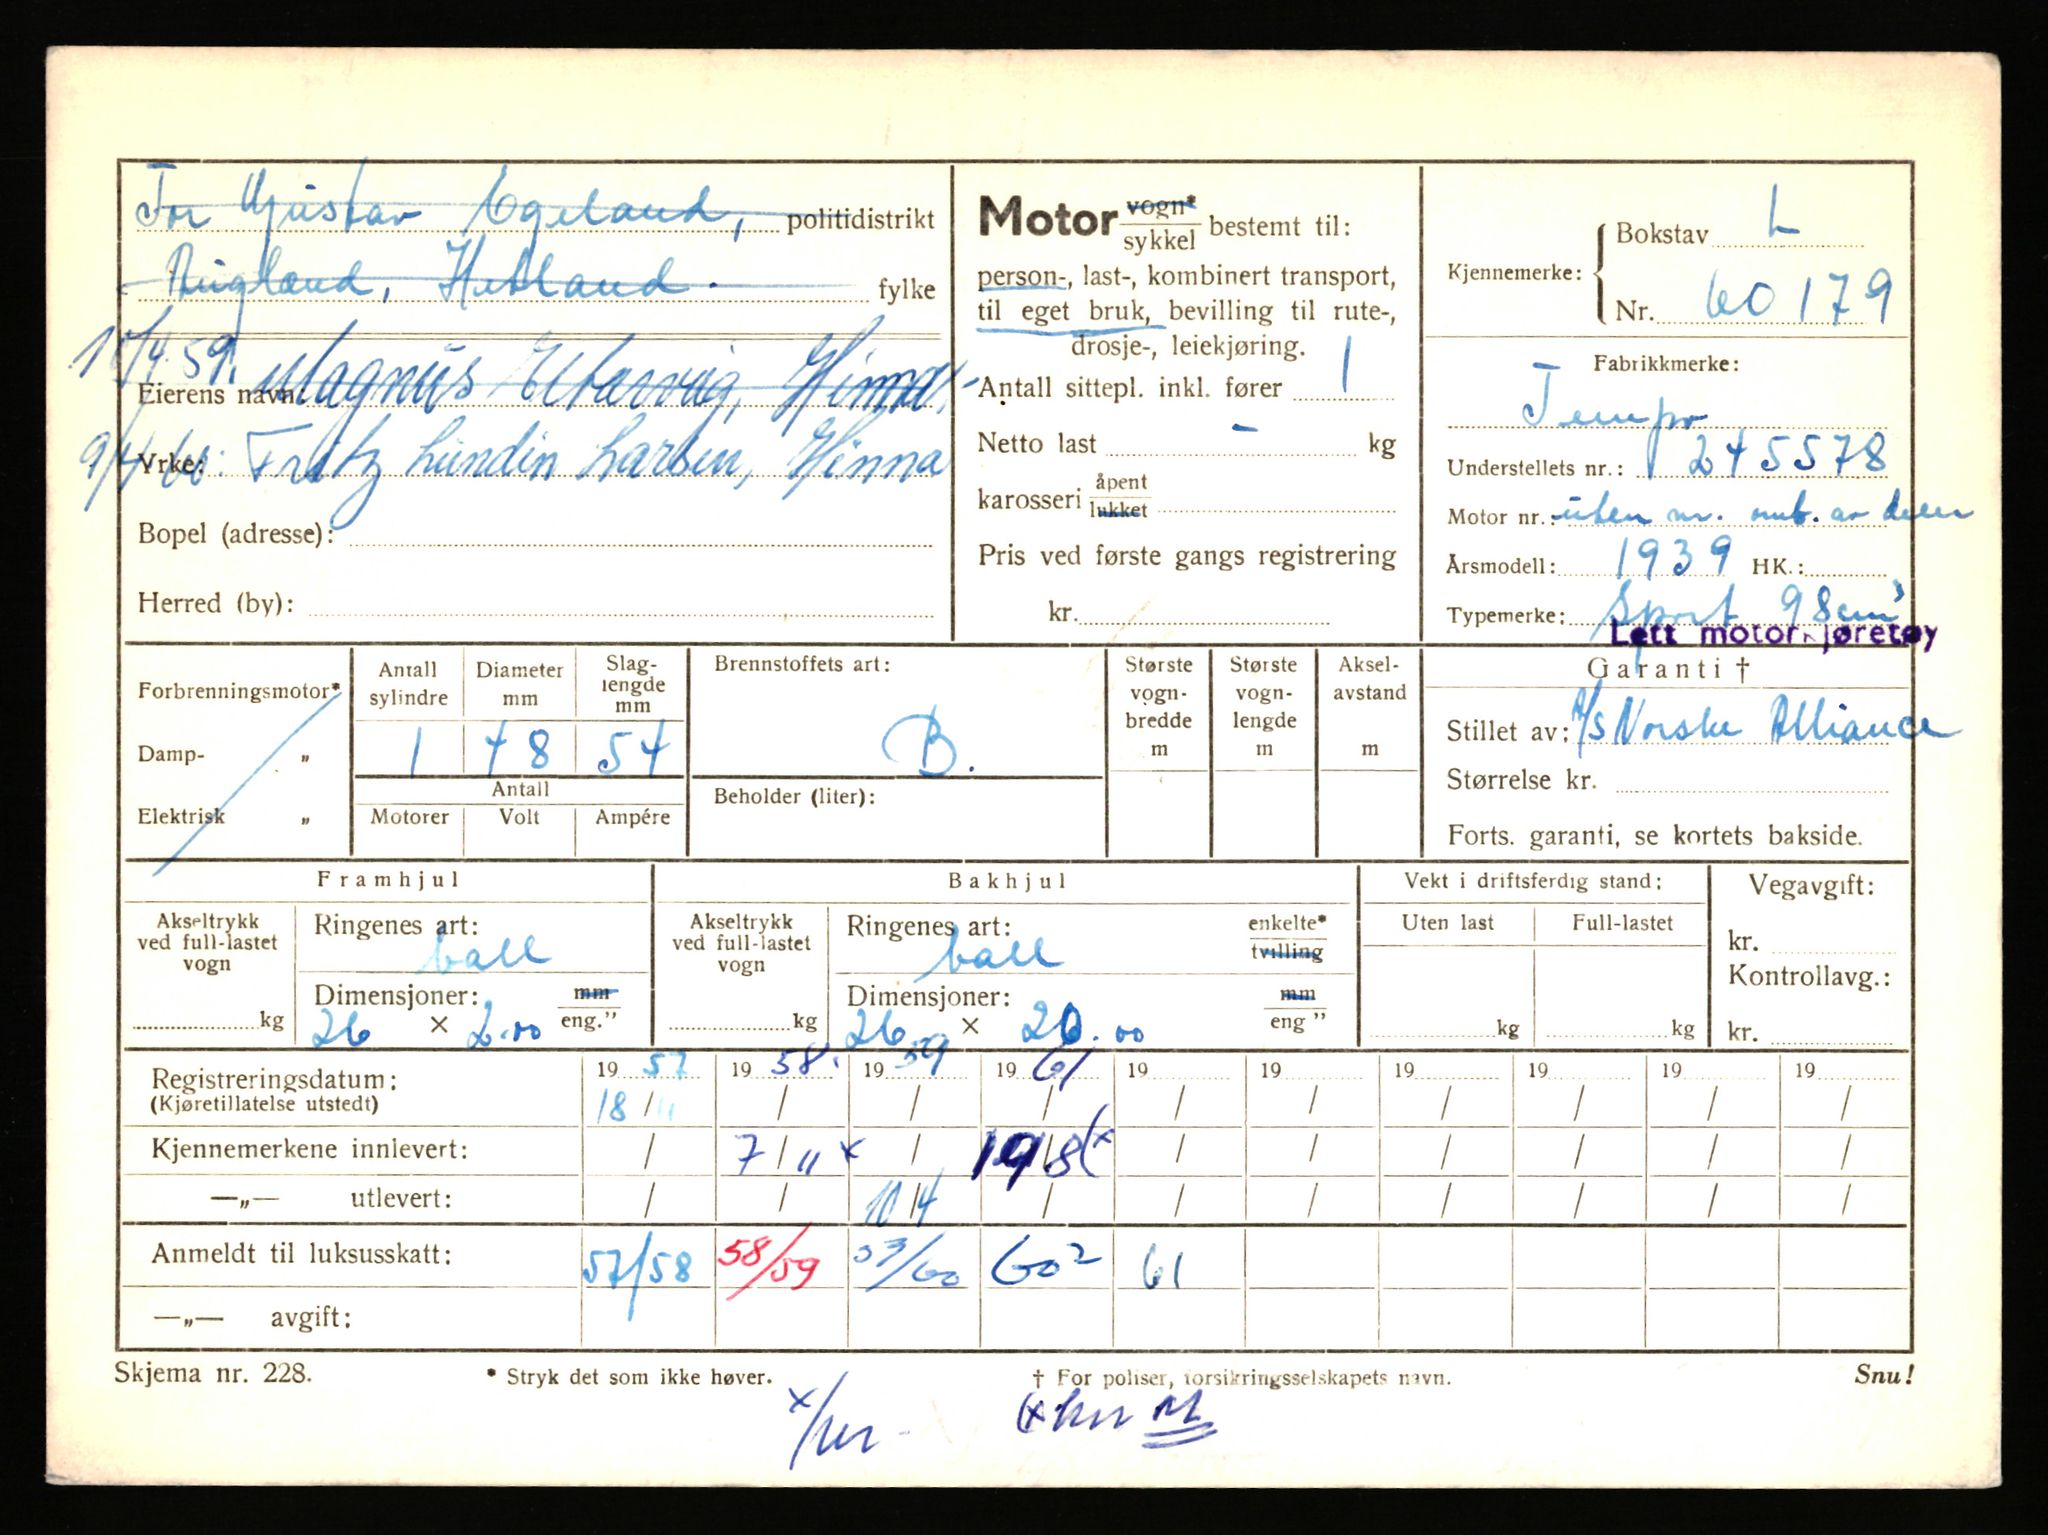 Tor Gustav Egeland, politidistrikt
Hetland. fylke
10/4 59. Magnus Hinna.
Eierens navn
9/4 60: Fritz Lundin Larsen, Hinna
Yrke:
Bopel (adresse):
Herred (by):
Motor vogn* sykkel bestemt til:
person-, last-, kombinert transport,
til eget bruk, bevilling til rute-,
drosje-, leiekjøring.
Antall sittepl. inkl. fører 1
Netto last - kg
karosseri åpent lukket
Pris ved første gangs registrering
kr.
Kjennemerke: Bokstav L
Nr. 60179
Fabrikkmerke:
Tempo
Understellets nr.: 245578
Motor nr.: uten nr. av deler
Årsmodell: 1939 HK.:
Typemerke: Sport 98 cm³
Lett motorkjøretøy
Forbrenningsmotor*
Damp- „
Elektrisk „
Antall sylindre Diameter mm Slag-lengde mm
1 48 54
Antall
Motorer Volt Ampére
Brennstoffets art:
B.
Beholder (liter):
Største vogn-bredde m
Største vogn-lengde m
Aksel-avstand m
Garanti †
Stillet av: A/S Norske Alliance
Størrelse kr.
Forts. garanti, se kortets bakside.
Framhjul
Akseltrykk ved full-lastet vogn
kg
Ringenes art:
ball
Dimensjoner: mm eng."
26 × 2.00
Bakhjul
Akseltrykk ved full-lastet vogn
kg
Ringenes art: enkelte* tvilling
ball
Dimensjoner: mm eng "
26 × 20.00
Vekt i driftsferdig stand:
Uten last Full-lastet
kg kg
Vegavgift:
kr.
Kontrollavg.:
kr.
Registreringsdatum: 19 57 19 58. 19 59 19 61 19 19 19 19 19 19
(Kjøretillatelse utstedt) 18 / 11 / / / / / / / / /
Kjennemerkene innlevert: / 7 / 11 x / 19 / 8 (x / / / / / /
—„— utlevert: / / 10/4 / / / / / / /
Anmeldt til luksusskatt: 57/58 58/59 59/60 60² 61
—„— avgift:
Skjema nr. 228. * Stryk det som ikke høver. † For poliser, forsikringsselskapets navn. Snu!